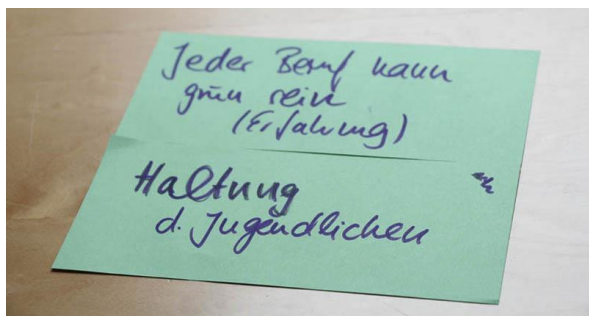 Jeder Beruf kann
grün sein
(Erfahrung)
Haltung
d. Jugendlichen